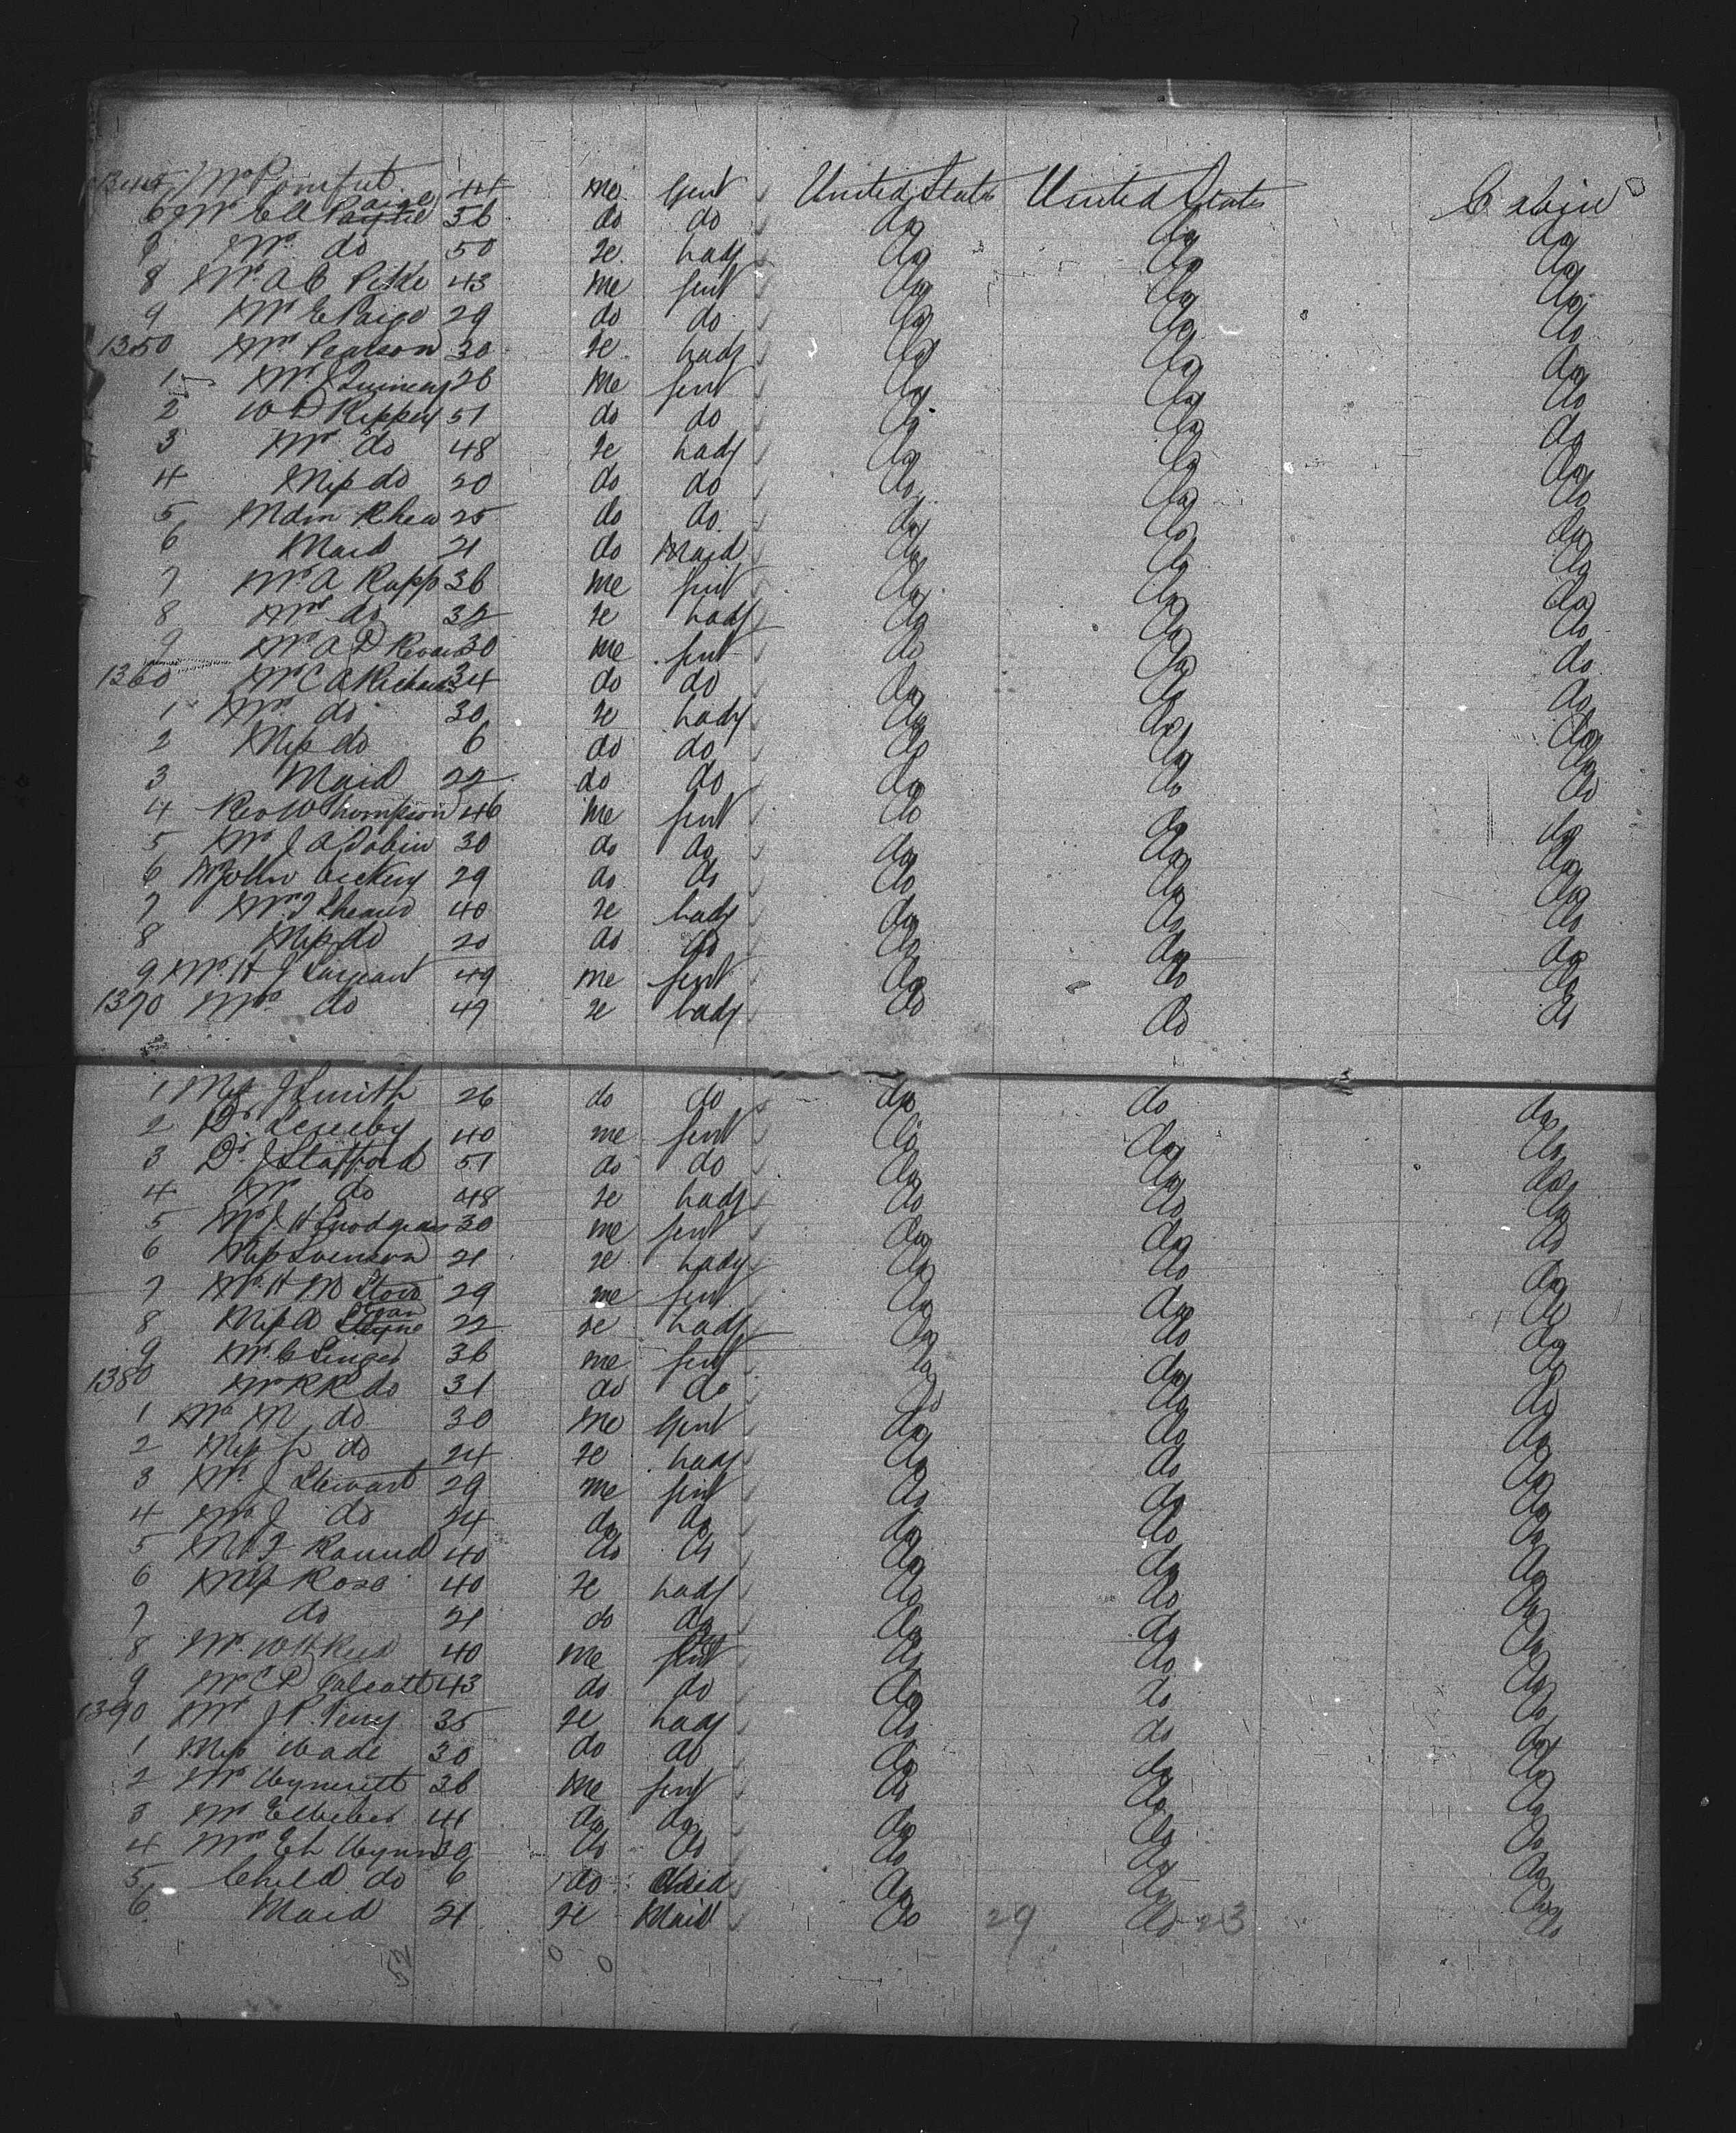 1345 Mr Pomfret 44 me Gent United States United States Cabin
6 Mr C A Paige 36 do do do do do
7 Mrs do 50 fe Lady do do do
8 Mr A C Pike 43 me Gent do do do
9 Mr E Paige 29 do do do do do
1350 Mrs Pearson 30 fe Lady do do do
1 Mr J Quincey 26 me Gent do do do
2 W D Rippey 51 do do do do do
3 Mrs do 48 fe Lady do do do
4 Miss do 20 do do do do do
5 Mdm Rhea 25 do do do do do
6 Maid 21 do Maid do do do
7 Mr A Rapp 36 me Gent do do do
8 Mrs do 32 fe Lady do do do
9 Mr A D 30 me Gent do do do
1360 Mr C A 34 do do do do do
1 Mrs do 30 fe Lady do do do
2 Miss do 6 do do do do do
3 Maid 22 do do do do do
4 Rev W Thompson 46 me Gent do do do
5 Mr J A 30 do do do do do
6 Mr John 29 do do do do do
7 Mrs 40 fe Lady do do do
8 Miss do 20 do do do do do
9 Mr H J Sargeant 49 me Gent do do do
1370 Mrs do 49 fe Lady do do do
1 Miss J Smith 26 do do do do do
2 Dr 40 me Gent do do do
3 Dr J Stafford 51 do do do do do
4 Mrs do 48 fe Lady do do do
5 Mr J H Snodgrass 30 me Gent do do do
6 Miss Swenson 21 fe Lady do do do
7 Mr H M 29 me Gent do do do
8 Miss A 22 fe Lady do do do
9 Mr C Singer 36 me Gent do do do
1380 Mr R R do 31 do do do do do
1 Mr M do 30 me Gent do do do
2 Miss L do 24 fe Lady do do do
3 Mr J Stewart 29 me Gent do do do
4 Mr J do 24 do do do do do
5 Round 40 do do do do do
6 Miss Rose 40 fe Lady do do do
7 do 21 do do do do do
8 Mr W H Reed 40 me Gent do do do
9 Mr C D 43 do do do do do
1390 Mrs J P Perry 35 fe Lady do do do
1 Miss Wade 30 do do do do do
2 Mr 36 me Gent do do do
3 Mr E 41 do do do do do
4 Mrs E L Wynn 39 do do do do do
5 Child do 6 do Child do do do
6 Maid 21 fe Maid do 29 do 23 do